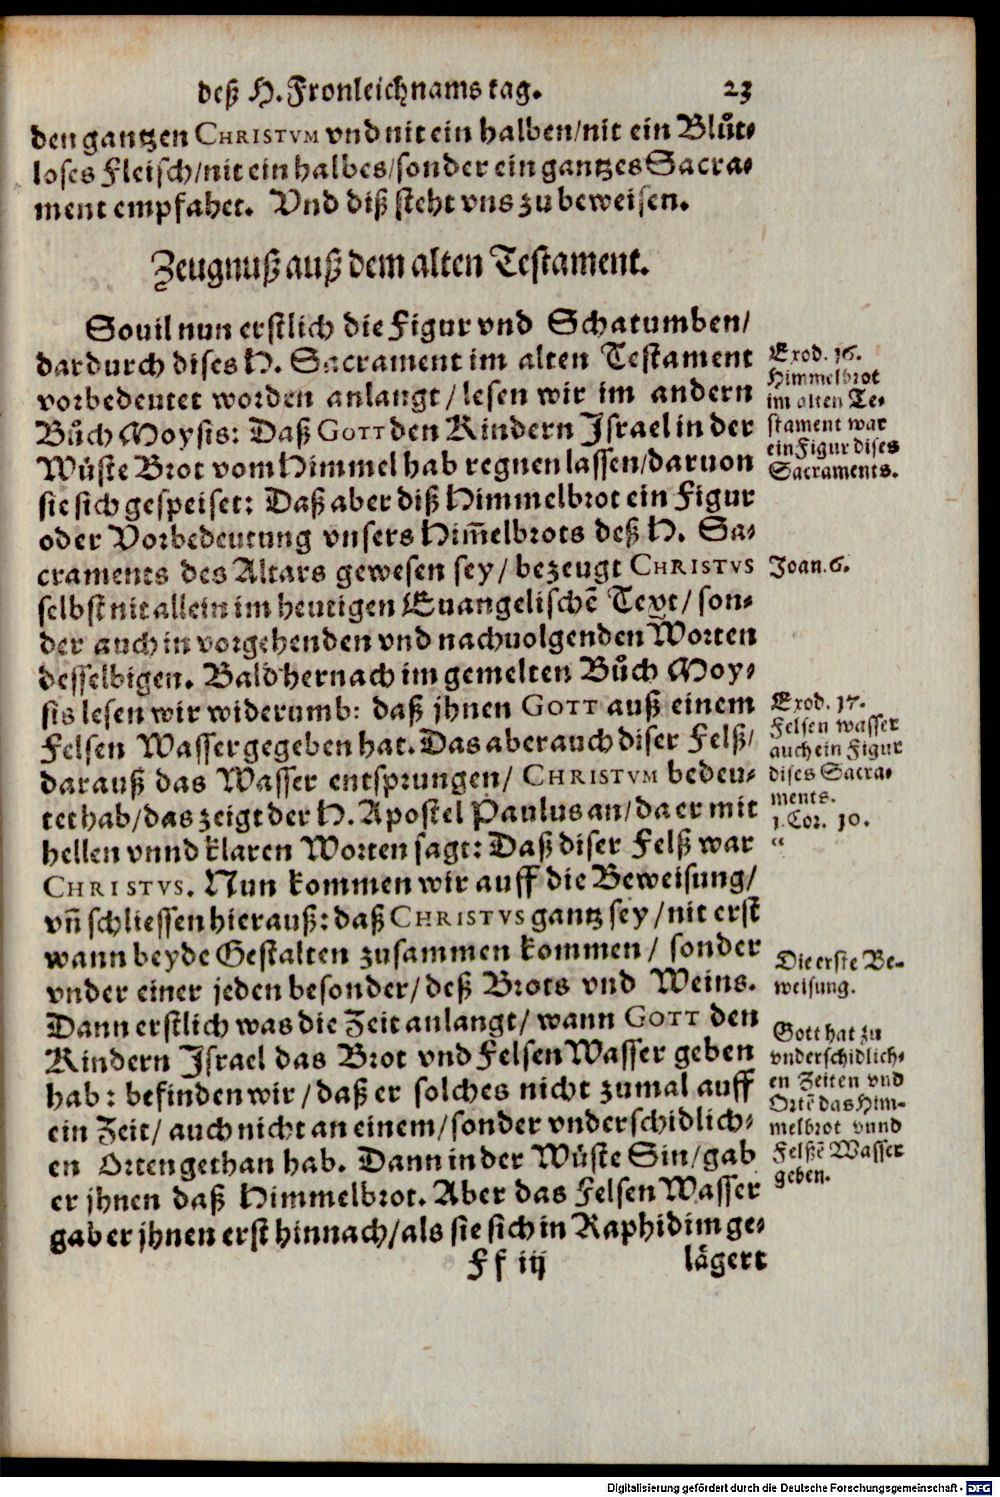 deß H. Fronleichnams tag. 23
den gantzen CHRISTVM vnd nit ein halben/nit ein Blůt-
loses Fleisch/nit ein halbes/sonder ein gantzes Sacra-
ment empfahet. Vnd diß steht vns zu beweisen.
Zeugnuß auß dem alten Testament.
Souil nun erstlich die Figur vnd Schatumben/
dardurch dises H. Sacrament im alten Testament
vorbedeutet worden anlangt/lesen wir im andern
Bůch Moysis: Daß GOTT den Kindern Israel in der
Wůste Brot vom Himmel hab regnen lassen/daruon
sie sich gespeiset: Daß aber diß Himmelbrot ein Figur
oder Vorbedeutung vnsers Him̃elbrots deß H. Sa-
craments des Altars gewesen sey/ bezeugt CHRISTVS
selbst nit allein im heutigen Euangelischẽ Text/ son-
der auch in vorgehenden vnd nachuolgenden Worten
desselbigen. Bald hernach im gemelten Bůch Moy-
sis lesen wir widerumb: daß jhnen GOTT auß einem
Felsen Wasser gegeben hat. Das aber auch diser Felß/
darauß das Wasser entsprungen/ CHRISTVM bedeu-
tet hab/das zeigt der H. Apostel Paulus an/da er mit
hellen vnnd klaren Worten sagt: Daß diser Felß war
CHRISTVS. Nun kommen wir auff die Beweisung/
vñ schliessen hierauß: daß CHRISTVS gantz sey/nit erst
wann beyde Gestalten zusammen kommen/ sonder
vnder einer jeden besonder/deß Brots vnd Weins.
Dann erstlich was die Zeit anlangt/ wann GOTT den
Kindern Israel das Brot vnd Felsen Wasser geben
hab: befinden wir/daß er solches nicht zumal auff
ein Zeit/ auch nicht an einem/sonder vnderschidlich-
en Orten gethan hab. Dann in der Wůste Sin/gab
er jhnen daß Himmelbrot. Aber das Felsen Wasser
gab er jhnen erst hinnach/als sie sich in Raphidim ge-
Ff iij lågert
Exod. 16.
Himmelbrot
im alten Te-
stament war
ein Figur dises
Sacraments.
Joan. 6.
Exod. 17.
Felsen wasser
auch ein Figur
dises Sacra-
ments.
1. Cor. 10.
“
Die erste Be-
weisung.
Gott hat zu
vnderschidlich-
en Zeiten vnd
Ortẽ das Him-
melbrot vnnd
Felßẽ Wasser
geben.
Digitalisierung gefördert durch die Deutsche Forschungsgemeinschaft - DFG